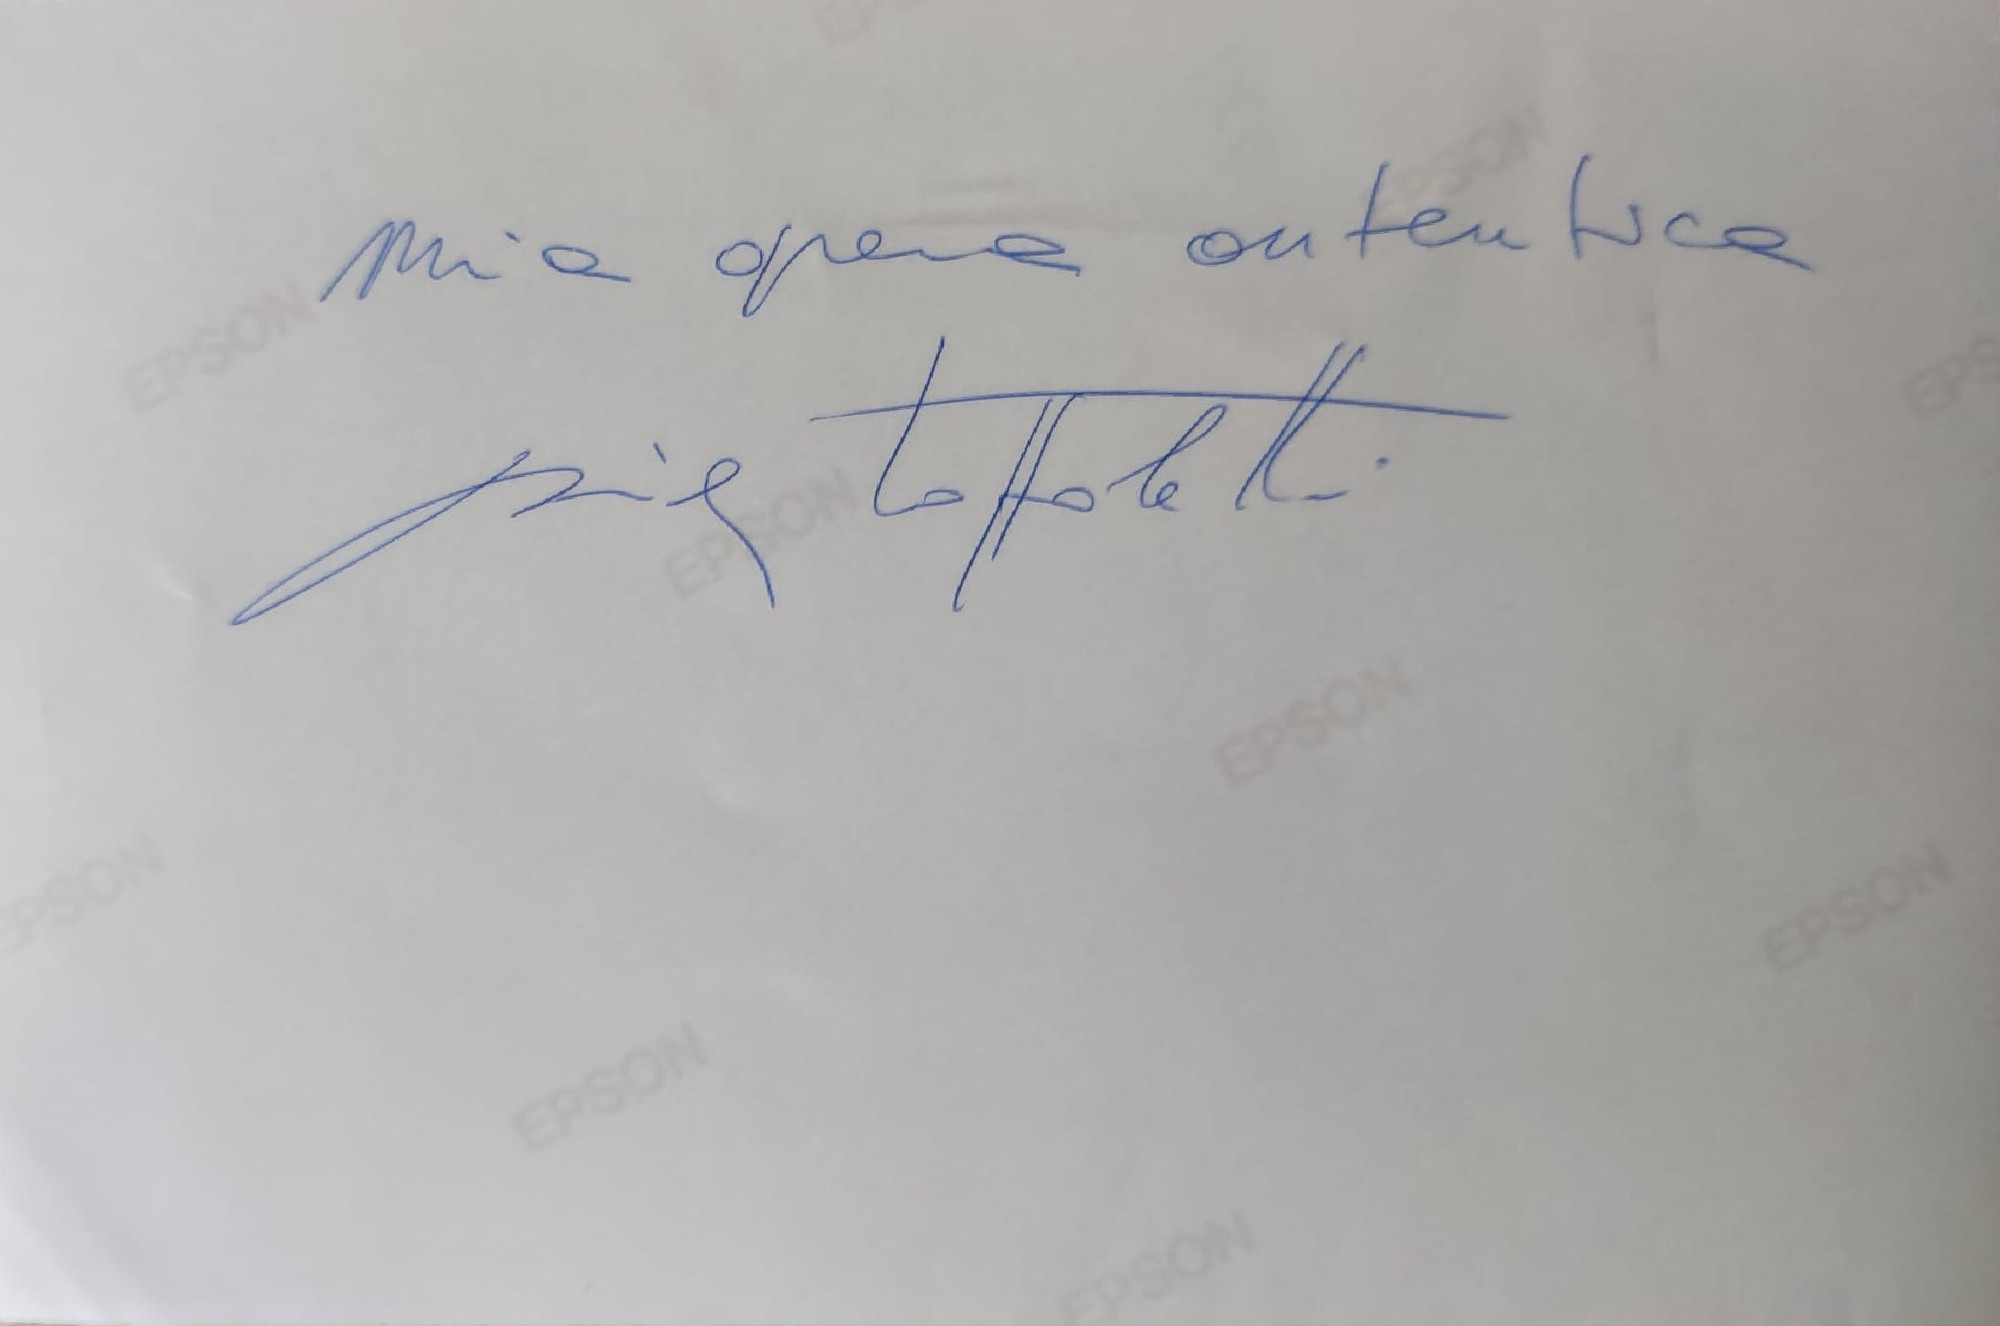 Mia opera autentica
Toffoletti
EPSON
EPSON
EPSON
EPSON
EPSON
EPSON
EPSON
EPSON
EPSON